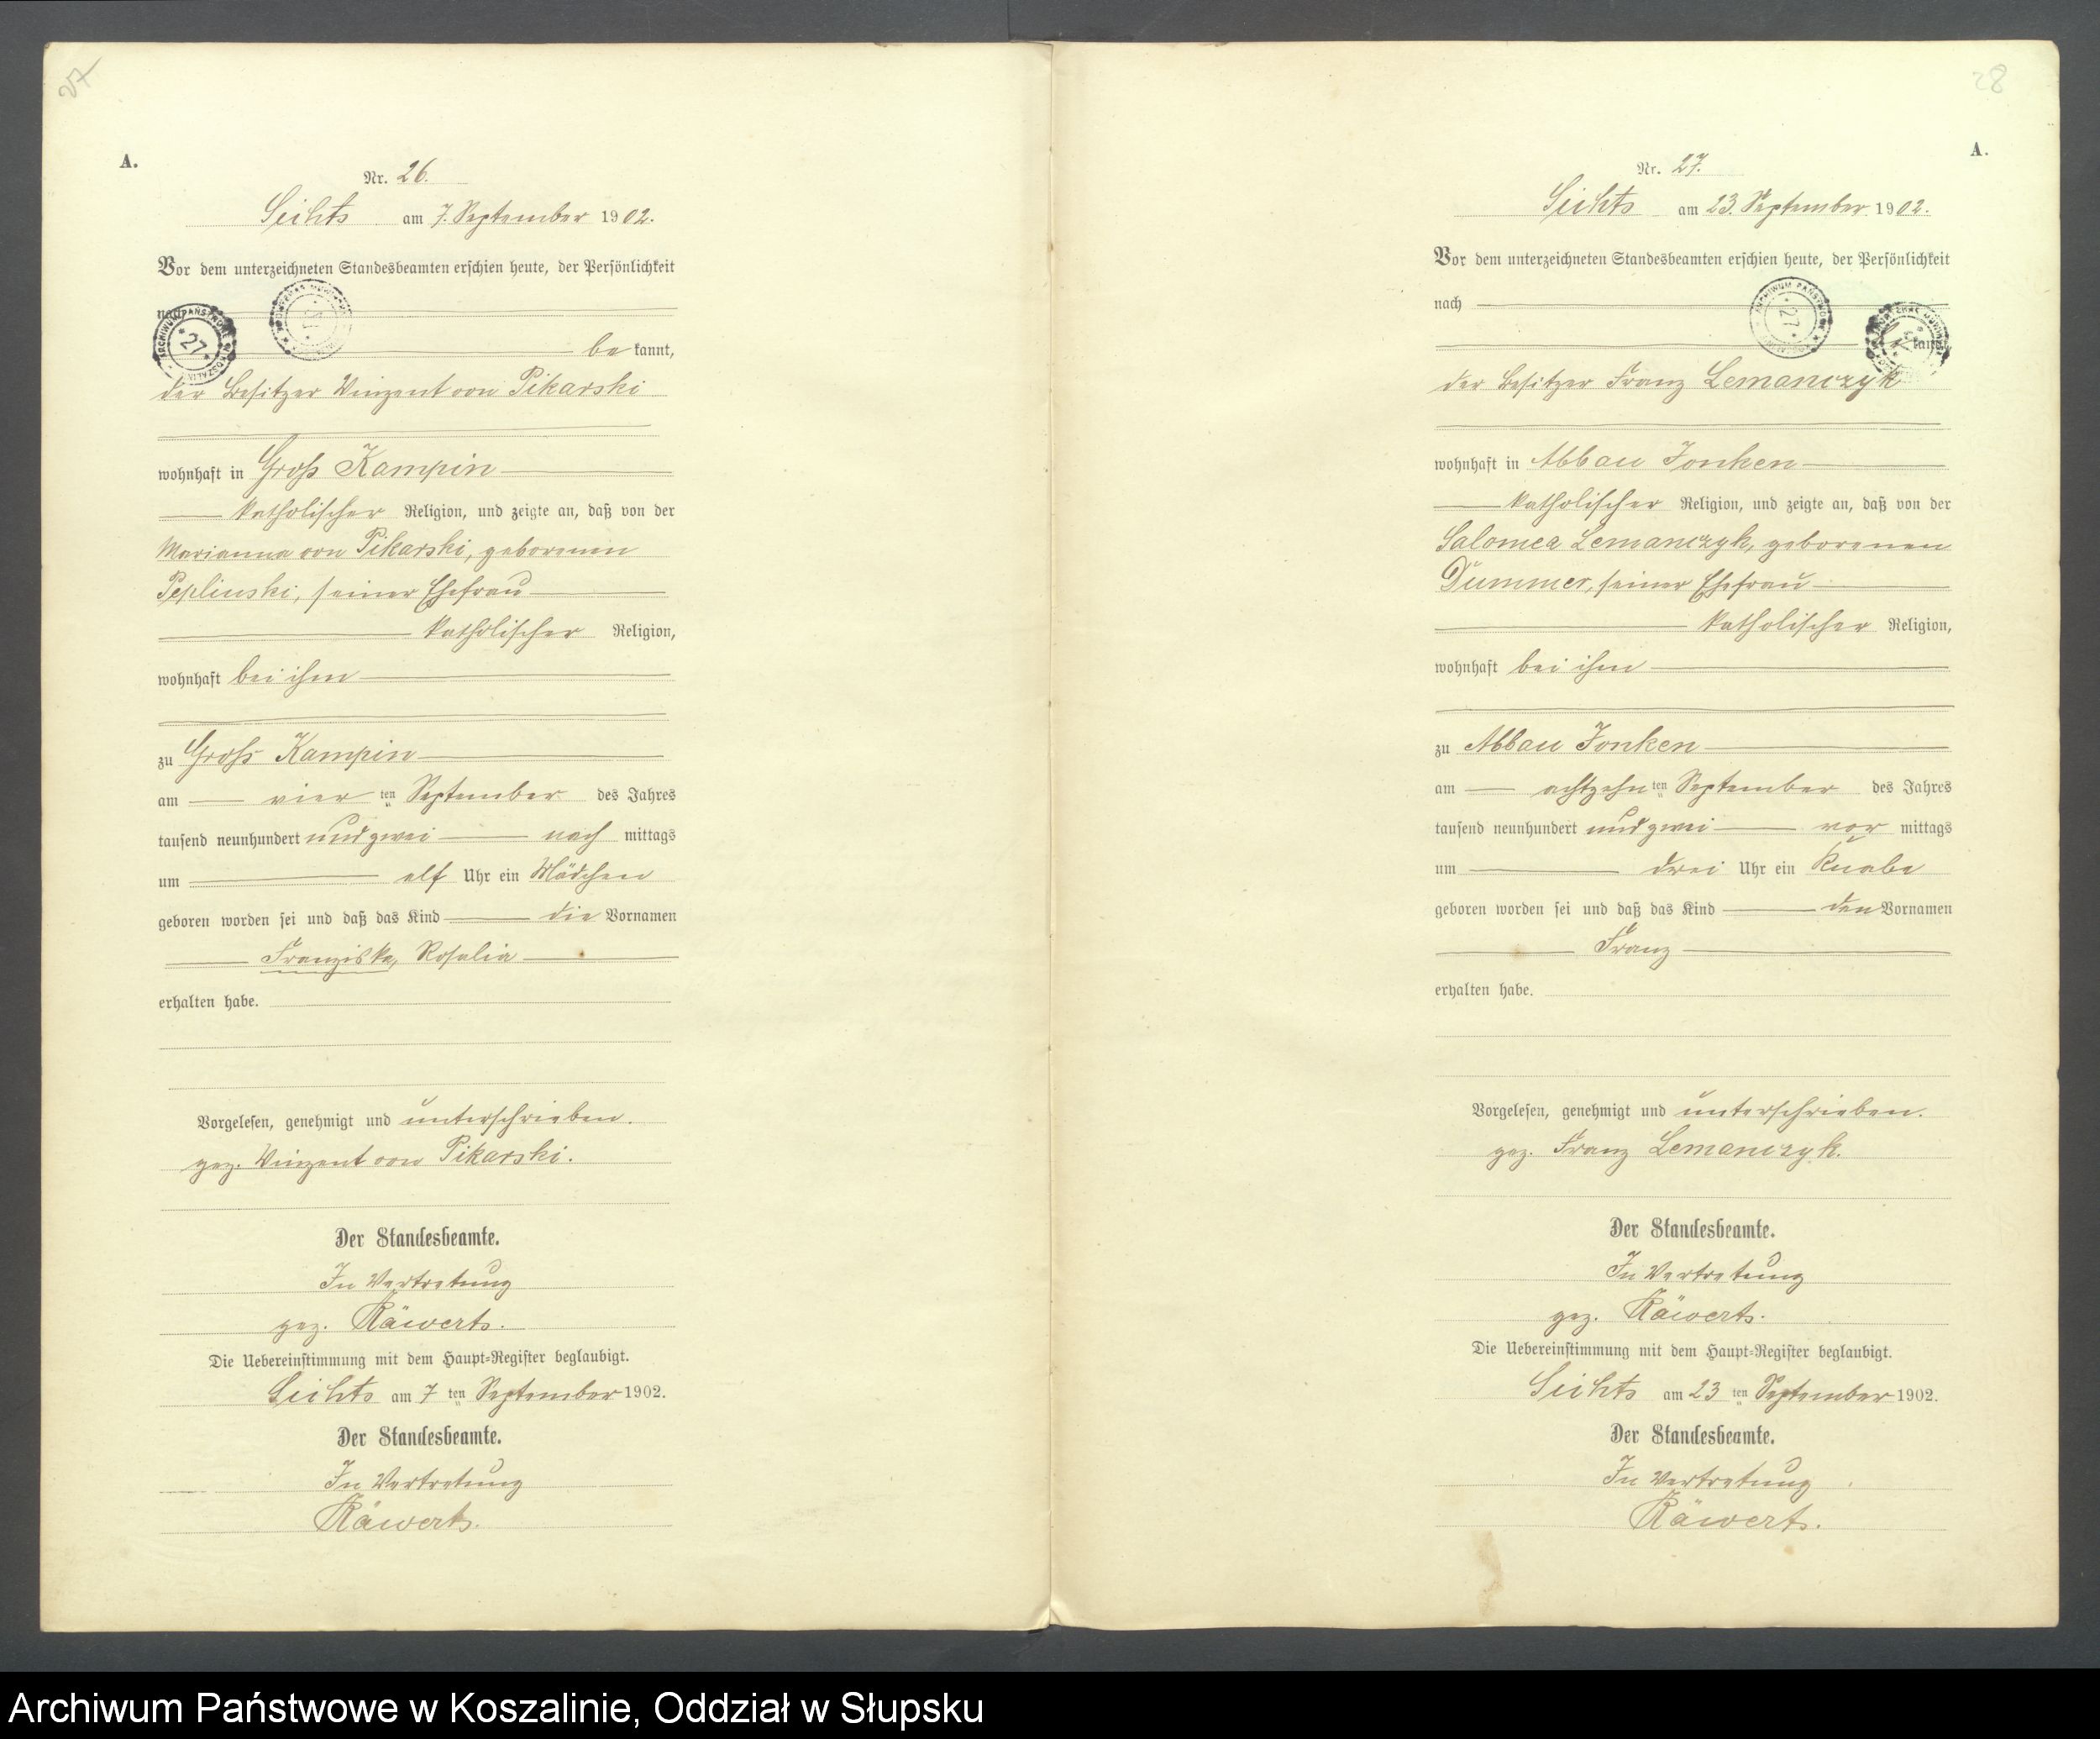 27
A.
Nr. 26.
Seihts am 7. September 1902.
Vor dem unterzeichneten Standesbeamten erschien heute, der Persönlichkeit
nach
be kannt,
der Besitzer Vinzent von Pikarski
wohnhaft in Groß Kampin
katholischer Religion, und zeigte an, daß von der
Marianna von Pikarski, geborenen
Peplinski, seiner Ehefrau
katholischer Religion,
wohnhaft bei ihm
zu Groß Kampin
am vier ten September des Jahres
tausend neunhundert und zwei nach mittags
um elf Uhr ein Mädchen
geboren worden sei und daß das Kind die Vornamen
Franziska, Rosalia
erhalten habe.
Vorgelesen, genehmigt und unterschrieben.
gez. Vinzent von Pikarski.
Der Standesbeamte.
In Vertretung
gez. Räwerts.
Die Uebereinstimmung mit dem Haupt-Register beglaubigt.
Seihts am 7 ten September 1902.
Der Standesbeamte.
In Vertretung
Räwerts.
28
A.
Nr. 27.
Seihts am 23. September 1902.
Vor dem unterzeichneten Standesbeamten erschien heute, der Persönlichkeit
nach
kannt,
der Besitzer Franz Lemanczyk
wohnhaft in Abbau Jonken
katholischer Religion, und zeigte an, daß von der
Salomea Lemanczyk, geborenen
Dummer, seiner Ehefrau
katholischer Religion,
wohnhaft bei ihm
zu Abbau Jonken
am achtzehn ten September des Jahres
tausend neunhundert und zwei vor mittags
um drei Uhr ein Knabe
geboren worden sei und daß das Kind den Vornamen
Franz
erhalten habe.
Vorgelesen, genehmigt und unterschrieben.
gez. Franz Lemanczyk.
Der Standesbeamte.
In Vertretung
gez. Räwerts.
Die Uebereinstimmung mit dem Haupt-Register beglaubigt.
Seihts am 23 ten September 1902.
Der Standesbeamte.
In Vertretung
Räwerts.
Archiwum Państwowe w Koszalinie, Oddział w Słupsku